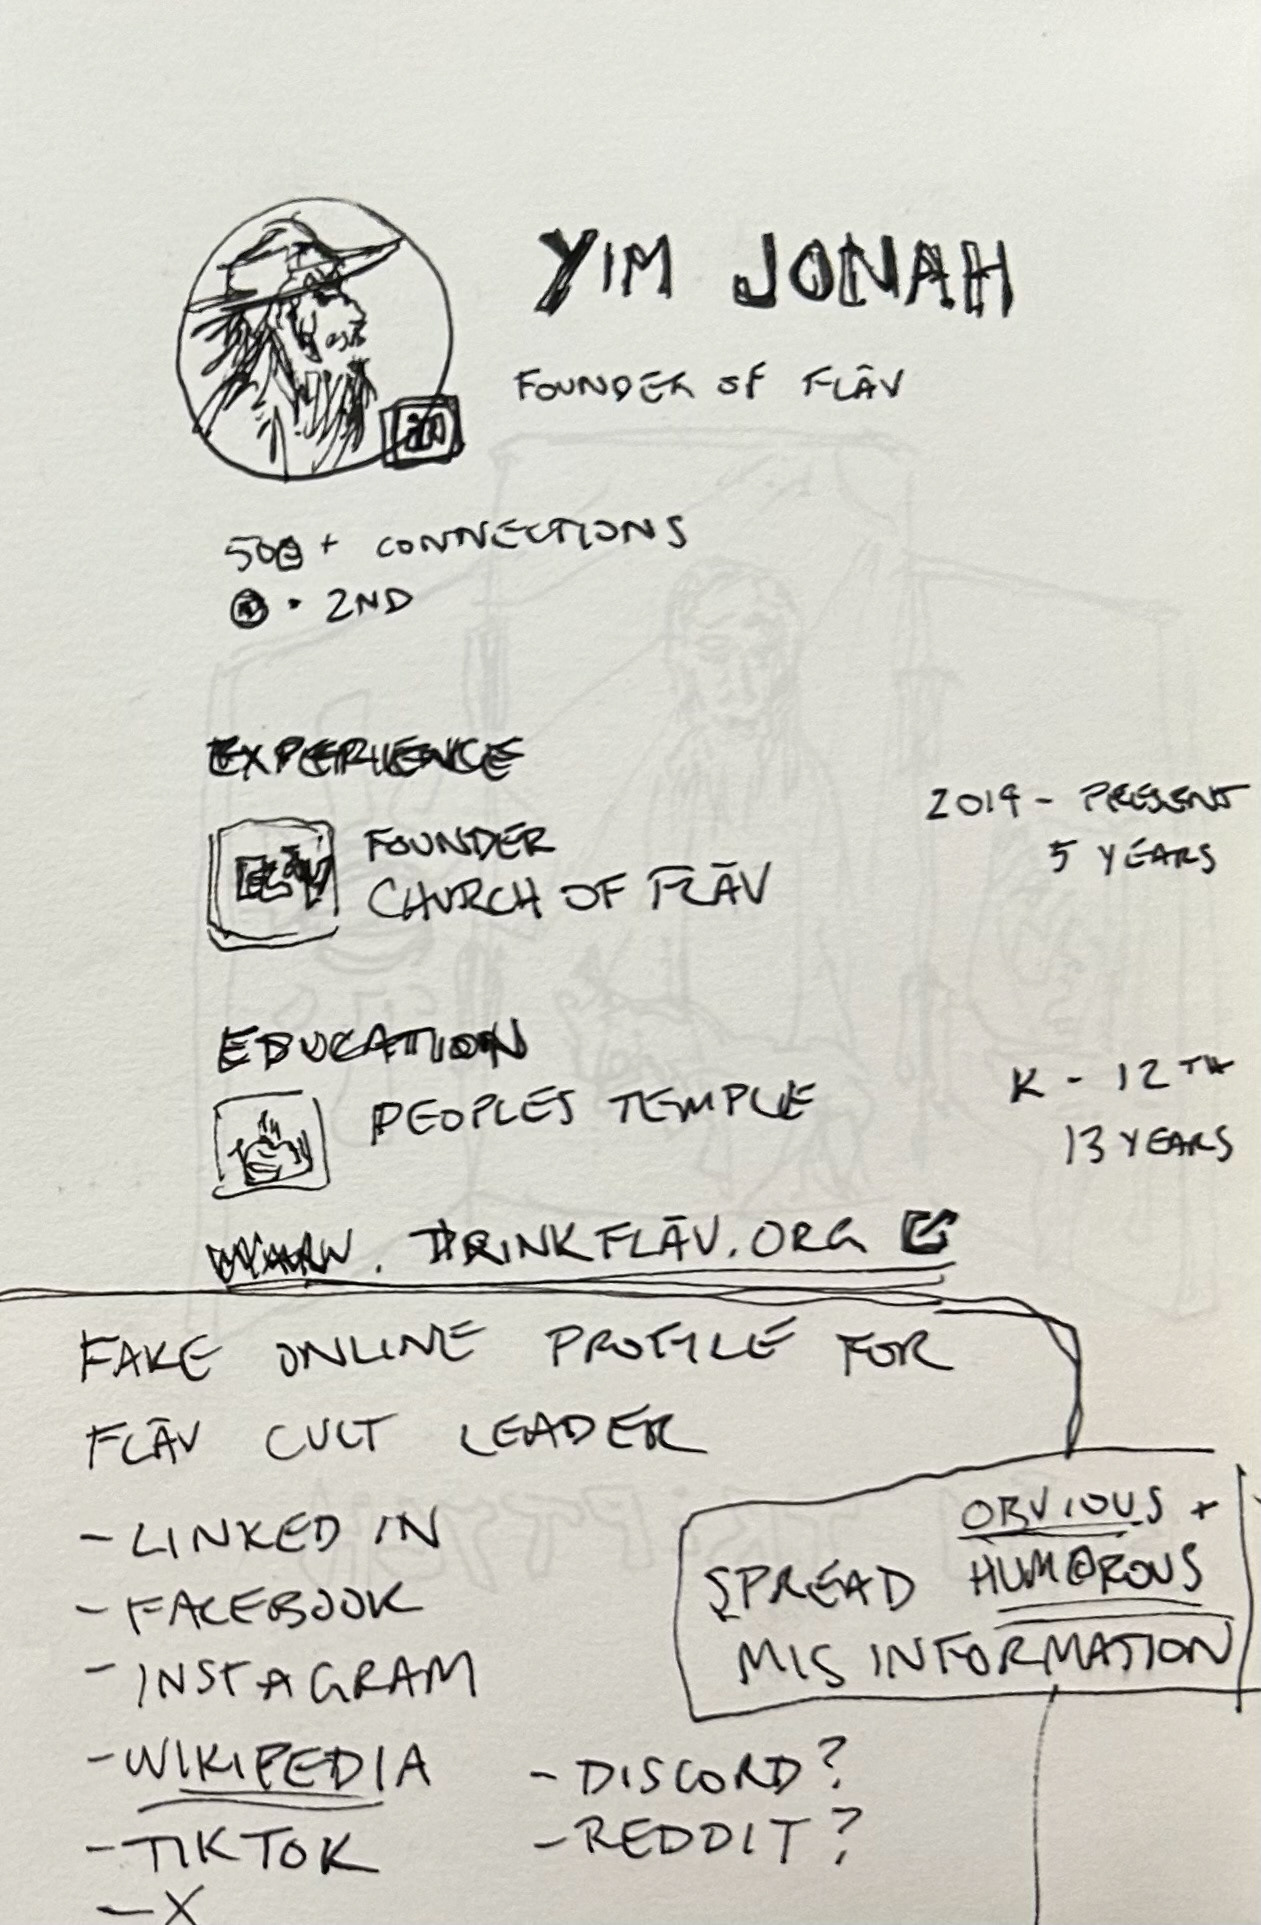 YIM JONAH
FOUNDER OF FLĀV
in
500+ CONNECTIONS
· 2ND
EXPERIENCE
FLĀV
FOUNDER
CHURCH OF FLĀV
2019 - PRESENT
5 YEARS
EDUCATION
PEOPLES TEMPLE
K - 12TH
13 YEARS
www.DRINKFLĀV.ORG
FAKE ONLINE PROFILE FOR
FLĀV CULT LEADER
- LINKED IN
- FACEBOOK
- INSTAGRAM
- WIKIPEDIA
- TIKTOK
- X
- DISCORD?
- REDDIT?
OBVIOUS +
SPREAD HUMOROUS
MISINFORMATION